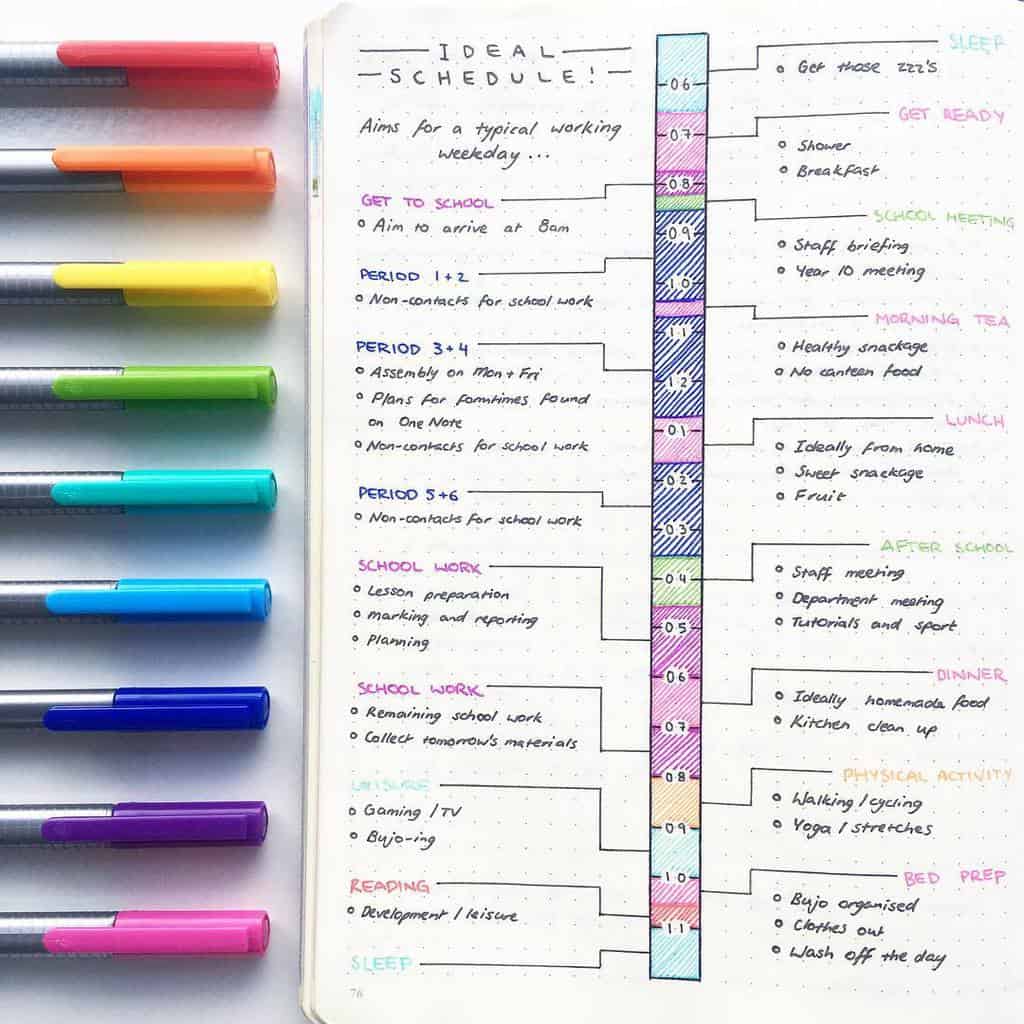 IDEAL
SCHEDULE!
Aims for a typical working
weekday ...
GET TO SCHOOL
Aim to arrive at 8am
PERIOD 1+2
Non-contacts for school work
PERIOD 3+4
Assembly on Mon + Fri
Plans for formtimes found
on OneNote
Non-contacts for school work
PERIOD 5+6
Non-contacts for school work
SCHOOL WORK
Lesson preparation
marking and reporting
Planning
SCHOOL WORK
Remaining school work
Collect tomorrow's materials
LEISURE
Gaming / TV
Bujo-ing
READING
Development / leisure
SLEEP
76
06
07
08
09
10
11
12
01
02
03
04
05
06
07
08
09
10
11
SLEEP
Get those zzz's
GET READY
Shower
Breakfast
SCHOOL MEETING
Staff briefing
Year 10 meeting
MORNING TEA
Healthy snackage
No canteen food
LUNCH
Ideally from home
Sweet snackage
Fruit
AFTER SCHOOL
Staff meeting
Department meeting
Tutorials and sport
DINNER
Ideally homemade food
Kitchen clean up
PHYSICAL ACTIVITY
Walking / cycling
Yoga / stretches
BED PREP
Bujo organised
Clothes out
Wash off the day